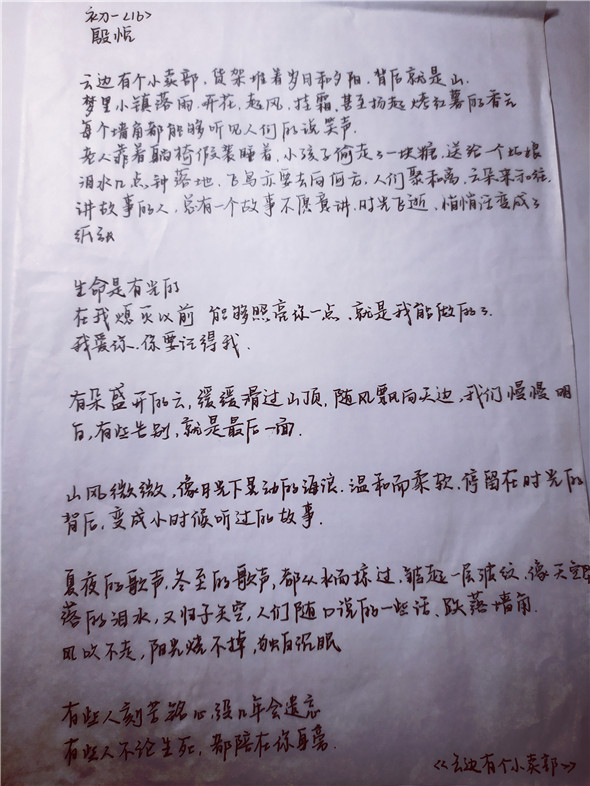 初一<16>
殷恺
云边有个小卖部,货架堆着岁月和夕阳,背后就是山.
梦里小镇落雨,开花,起风,挂霜,甚至扬起烤红薯的香气
每个墙角都能够听见人们的说笑声.
老人靠着躺椅假装睡着,小孩子偷走了一块糖,送给一个姑娘
泪水几点钟落地,飞鸟亦要去向何方,人们聚和离,云朵来和往,
讲故事的人,总有一个故事不愿意讲.时光飞逝,悄悄话变成了
纸
生命是有光的
在我熄灭以前 能够照亮你一点,就是我能做的了
我爱你.你要记得我.
有朵盛开的云,缓缓滑过山顶,随风飘向天边,我们慢慢明
白,有些告别,就是最后一面.
山风微微,像月光下晃动的海浪.温和而柔软.停留在时光的
背后,变成小时候听过的故事.
夏夜的歌声,冬至的歌声,都从水面掠过,皱起一层波纹,像天空
落的泪水,又归于天空,人们随口说的一些话、跌落墙角.
风吹不走,阳光烧不掉,独自沉眠
有些人刻骨铭心,没几年会遗忘
有些人不论生死,都陪在你身旁.
《云边有个小卖部》